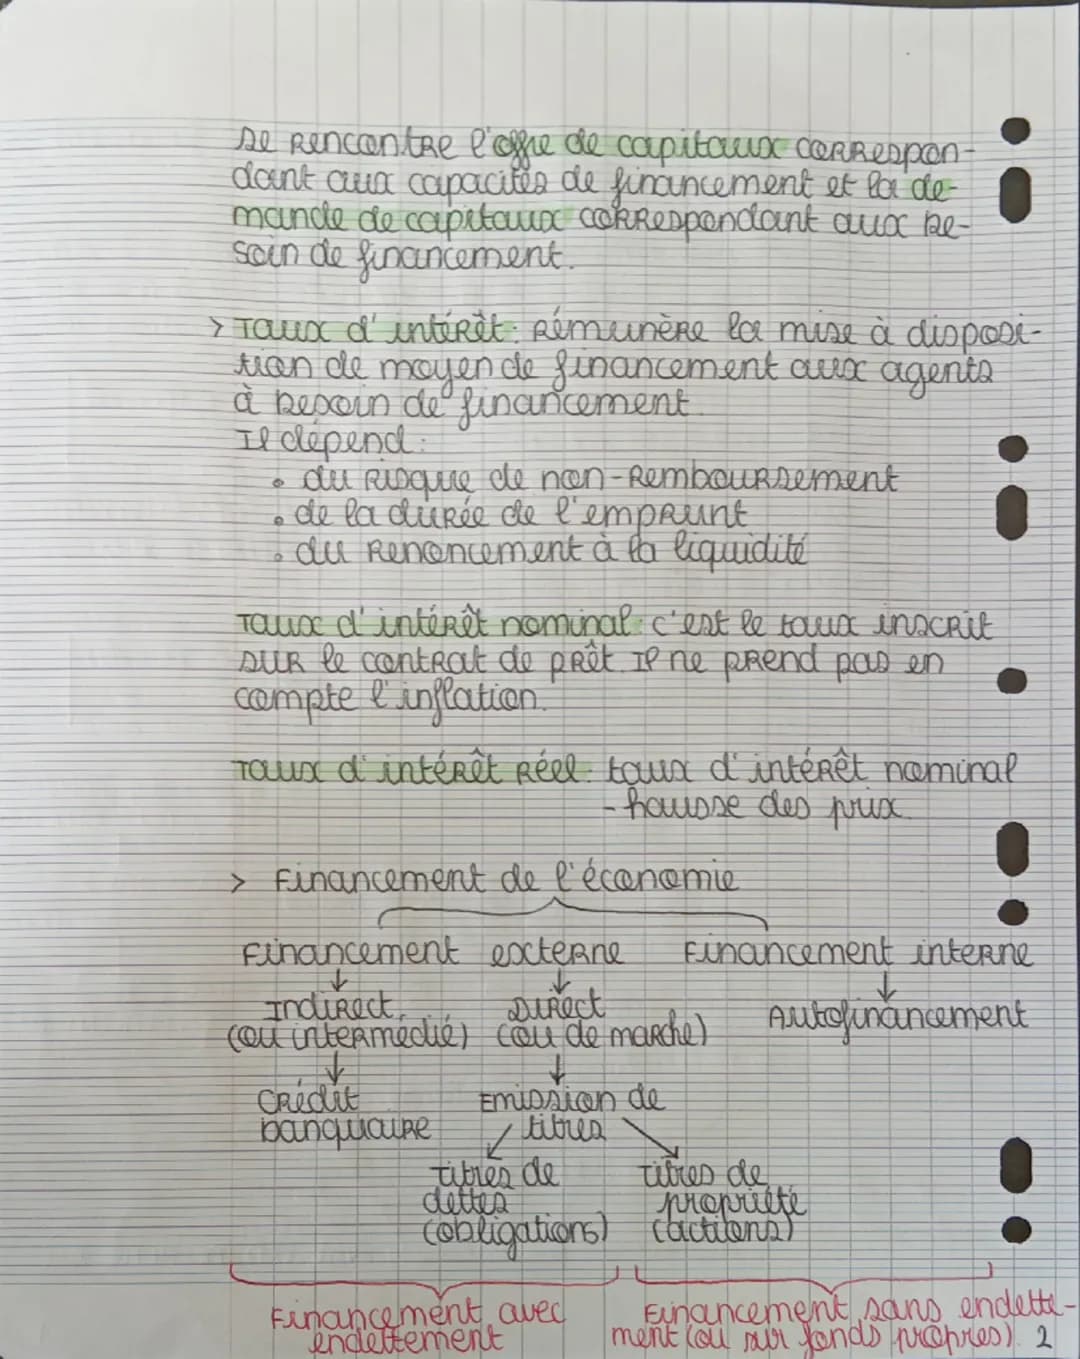 se rencontre l'offre de capitaux correspon-
dant aux capacités de financement et la de-
mande de capitaux correspondant aux be-
soin de financement.
> Taux d'intérêt : Rémunère la mise à disposi-
tion de moyen de financement aux agents
à besoin de financement.
Il dépend :
• du risque de non-remboursement
• de la durée de l'emprunt
• du renoncement à la liquidité
Taux d'intérêt nominal : c'est le taux inscrit
sur le contrat de prêt. Il ne prend pas en
compte l'inflation.
Taux d'intérêt réel : taux d'intérêt nominal
- hausse des prix.
> Financement de l'économie
Financement externe Financement interne
↓ ↓ ↓
Indirect Direct Autofinancement
(ou intermédié) (ou de marché)
↓ ↓
Crédit Emission de
banquaire titres
Titres de Titres de
dettes propriété
(obligations) (actions)
Financement avec Financement sans endette-
endettement ment (ou sur fonds propres). 2